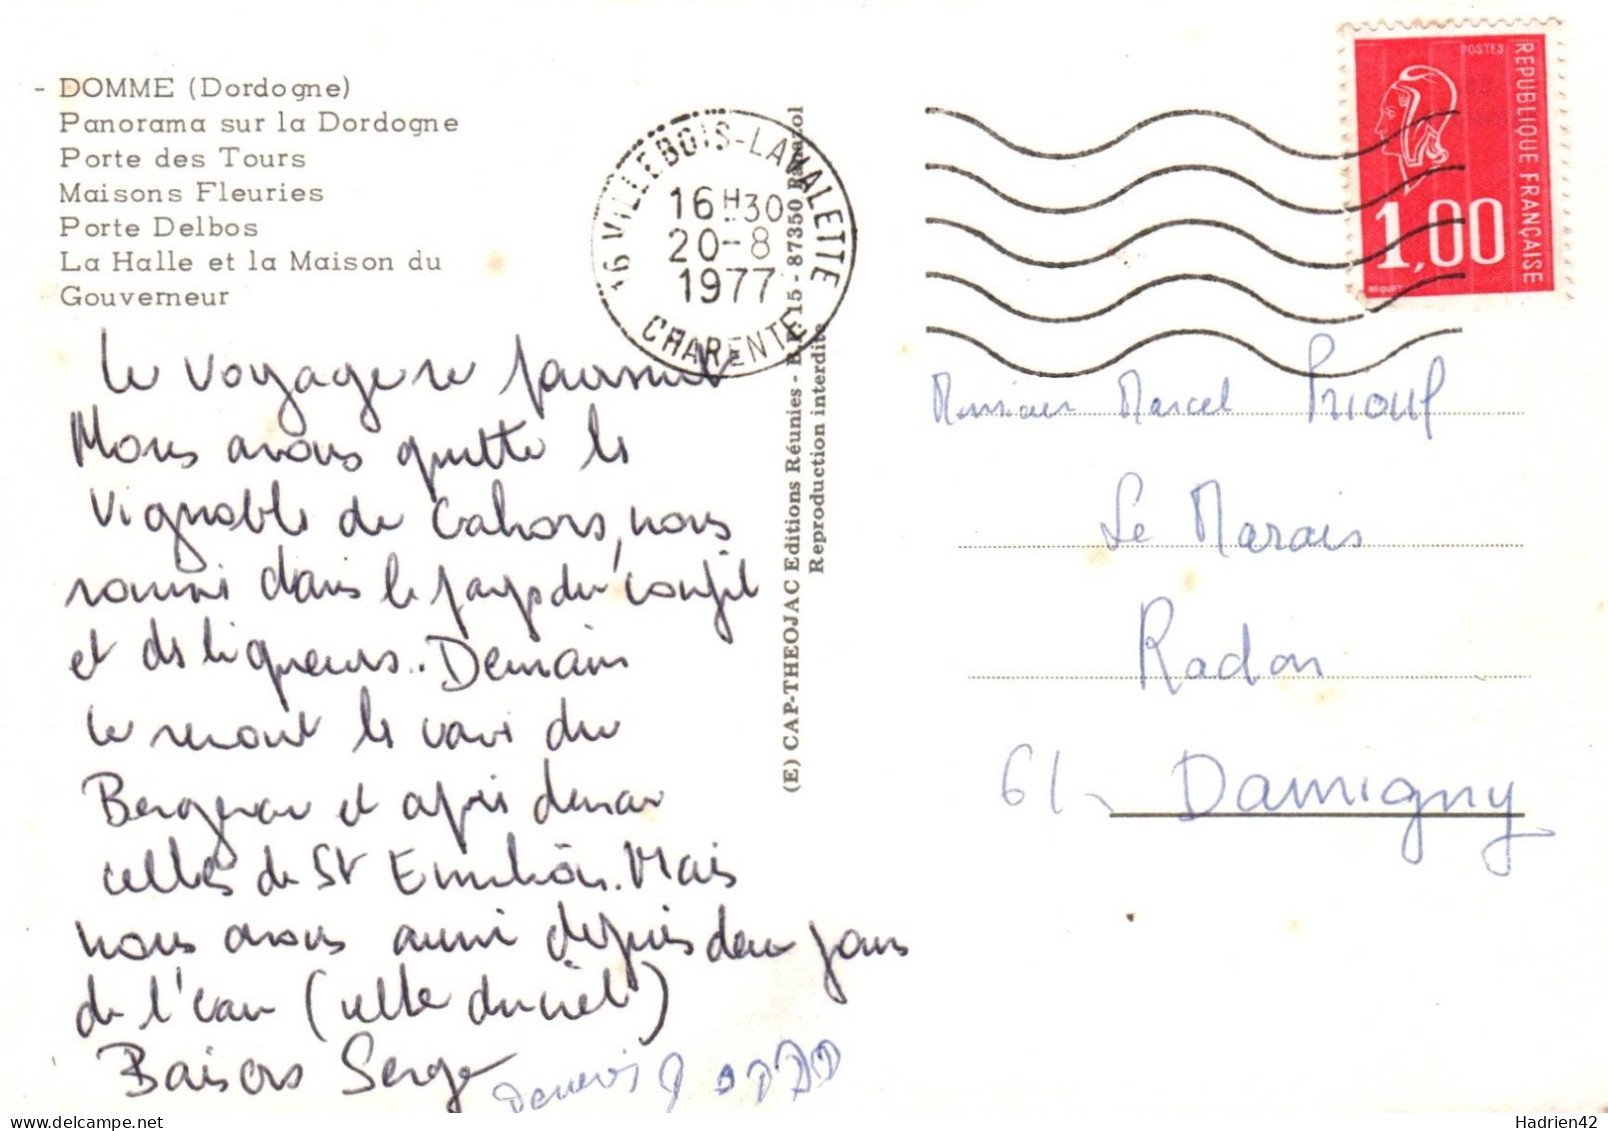 - DOMME (Dordogne)
Panorama sur la Dordogne
Porte des Tours
Maisons Fleuries
Porte Delbos
La Halle et la Maison du
Gouverneur
Le voyage se poursuit
Nous avons quitté le
vignoble de Cahors, nous
sommes dans le pays du confit
et des liqueurs.. Demain
ce seront les vins du
Bergerac et après demain
celles de St Emilion. Mais
nous avons aussi depuis deux jours
de l'eau (celle du ciel)
Baisers Serge
16 VILLEBOIS-LAVALETTE
16H30
20-8
1977
CHARENTE
(E) CAP-THEOJAC Editions Réunies - B.P. 15 - 87350 Panazol
Reproduction interdite
POSTES
REPUBLIQUE FRANÇAISE
1,00
BEQUET
Monsieur Marcel Prioul
Le Marais
Radon
61 - Damigny
Hadrien42